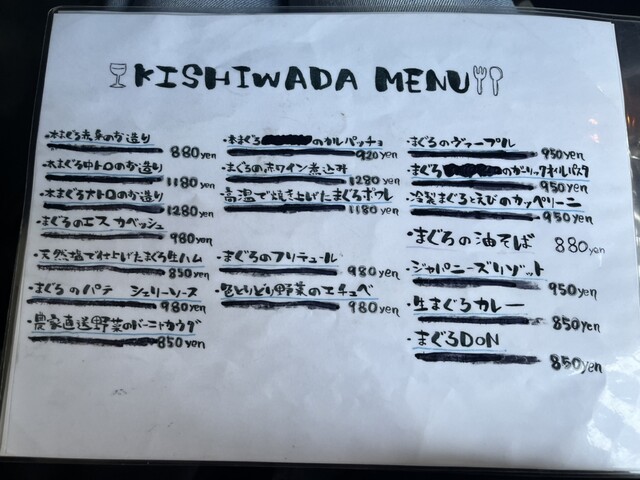 KISHIWADA MENU
・本まぐろ赤身のお造り
880yen
・本まぐろ中トロのお造り
1180yen
・本まぐろ大トロのお造り
1280yen
・まぐろのエスカベッシュ
980yen
・天然塩で仕上げたまぐろ生ハム
850yen
・まぐろのパテ シェリーソース
980yen
・農家直送野菜のバーニャカウダ
850yen
・本まぐろ のカルパッチョ
920yen
・まぐろの赤ワイン煮込み
1280yen
・高温で焼き上げたまぐろポワレ
1180yen
・まぐろのフリテュール
980yen
・色とりどり野菜のエチュベ
980yen
・まぐろのヴァーブル
950yen
・まぐろ のガーリックオイルパスタ
950yen
・冷製まぐろとえびのカッペリーニ
950yen
・まぐろの油そば 880yen
・ジャパニーズリゾット
950yen
・生まぐろカレー
850yen
・まぐろDON
850yen